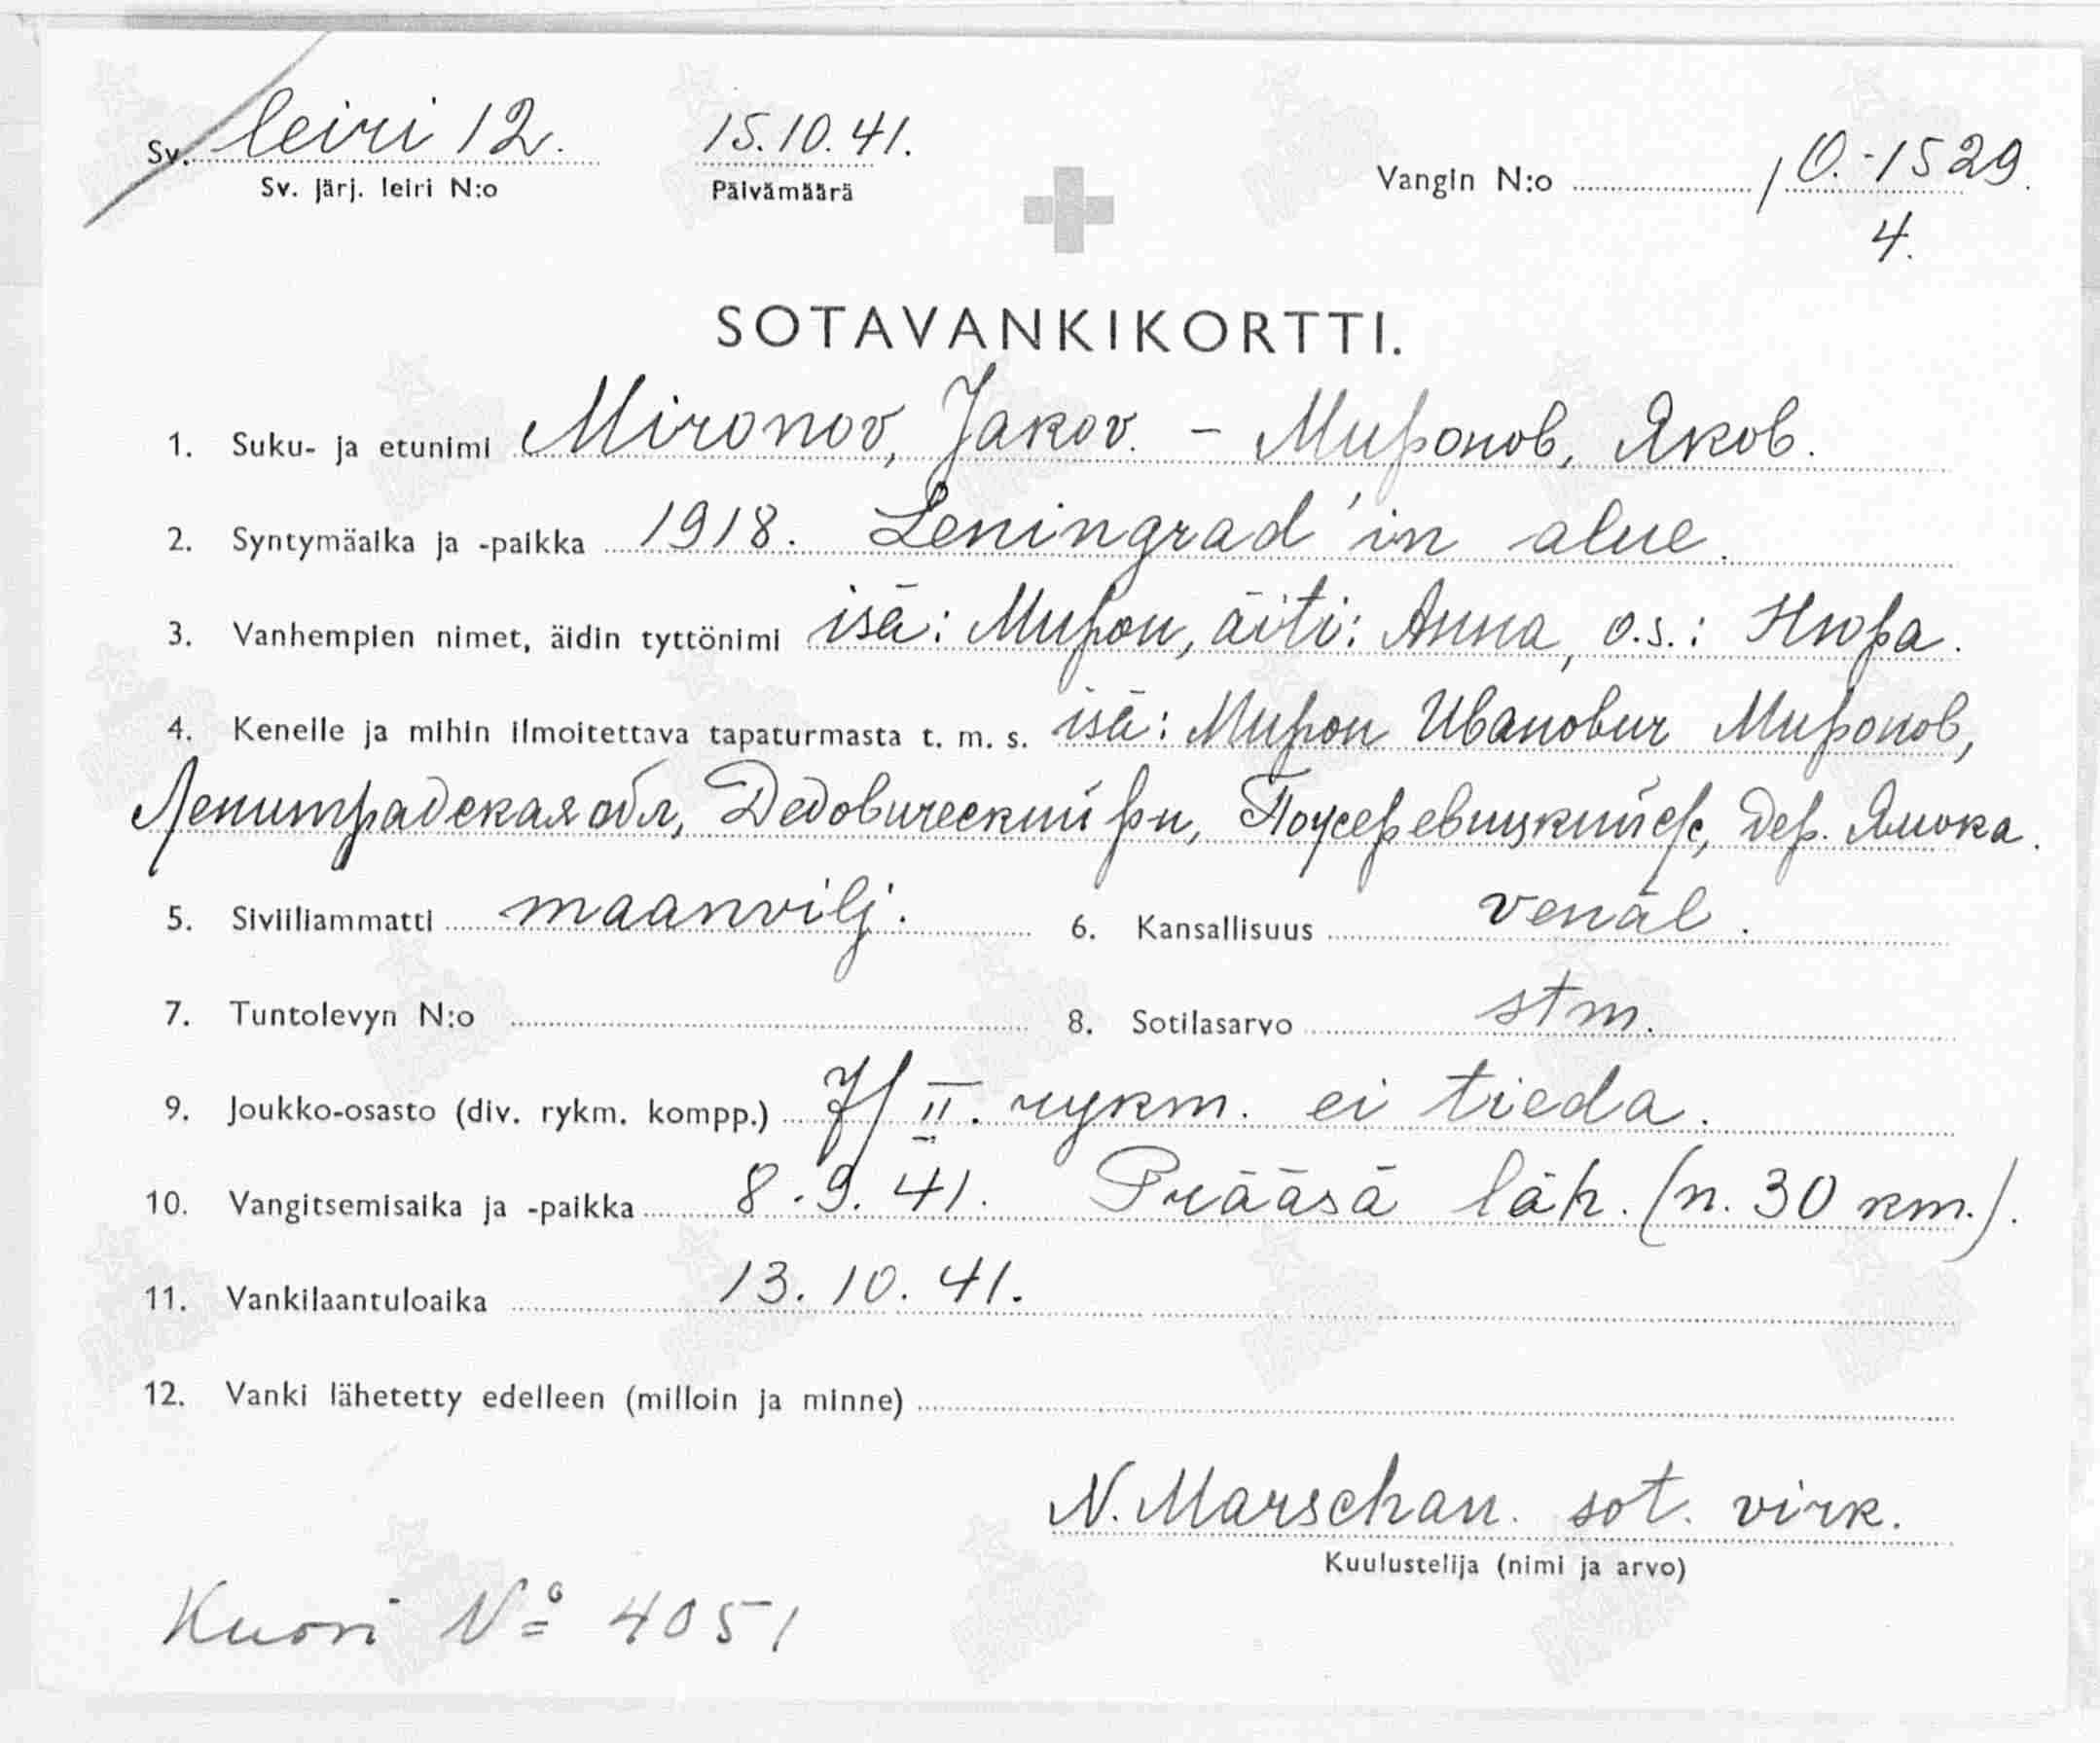 Sv. leiri 12. 15.10.41. Vangin N:o 10.-1529.
Sv. järj. leiri N:o Päivämäärä 4.
SOTAVANKIKORTTI.
1. Suku- ja etunimi Mironov, Jakov. - Миронов, Яков.
2. Syntymäaika ja -paikka 1918. Leningrad'in alue.
3. Vanhempien nimet, äidin tyttönimi isä: Мирон, äiti: Анна, o.s.: Нюра.
4. Kenelle ja mihin ilmoitettava tapaturmasta t. m. s. isä: Мирон Иванович Миронов,
Ленинградская обл, Дедовический рн, дер.
5. Siviiliammatti maanvilj. 6. Kansallisuus venäl.
7. Tuntolevyn N:o 8. Sotilasarvo stm.
9. Joukko-osasto (div. rykm. kompp.) II. rykm. ei tieda.
10. Vangitsemisaika ja -paikka 8.9.41. Prääsä läh. (n. 30 km.).
11. Vankilaantuloaika 13.10.41.
12. Vanki lähetetty edelleen (milloin ja minne)
N. Marschan. sot. virk.
Kuulustelija (nimi ja arvo)
Kuori № 4051